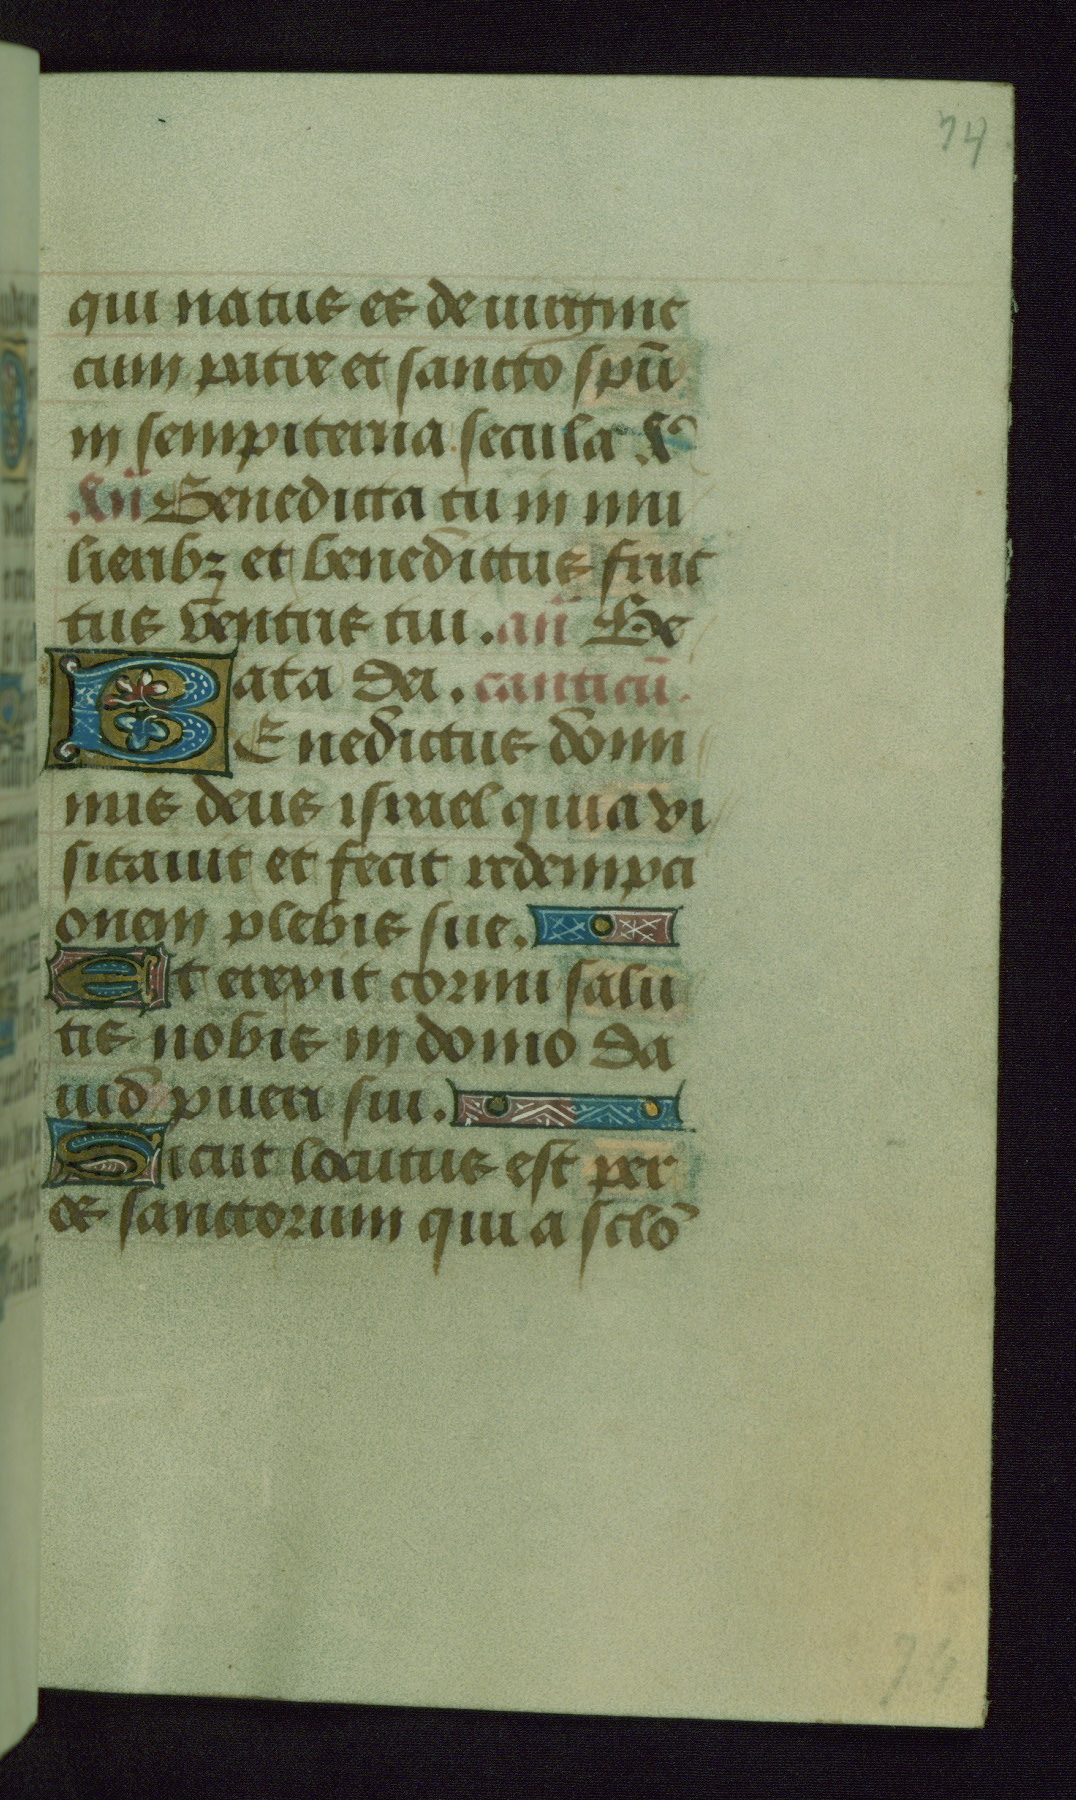 74
qui natus es de uirgine
cum patre et sancto spū
in sempiterna secula.
Benedicta tu in mu
lieribꝫ et benedictus fruc
tus ventris tui. an̄ Be
ata dei. canticū.
Benedictus domi
nus deus israel quia vi
sitauit et fecit redempci
onem plebis sue.
Et erexit cornu salu
tis nobis in domo da
uid pueri sui.
Sicut locutus est per
os sanctorum qui a sclō
74